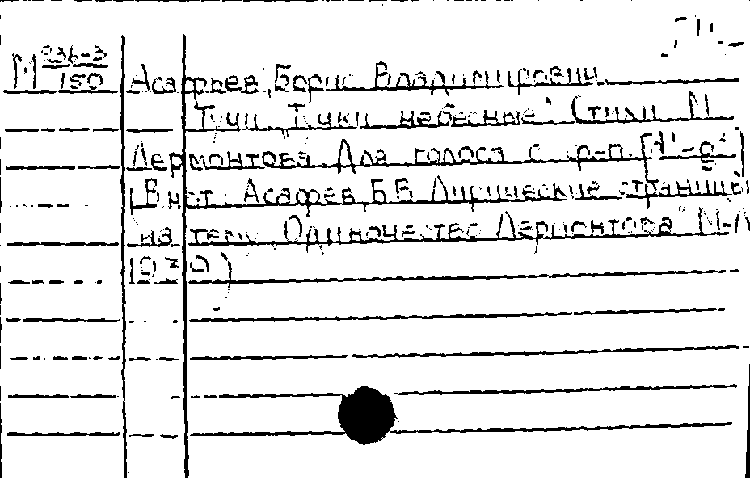 М 936-3
150
Асафьев, Борис Владимирович.
Тучи. „Тучки небесные“ Стихи М.
Лермонтова. Для голоса с ф-п.
(В нот. Асафьев, Б.В. Лирические страницы
на тему „Одиночество Лермонтова“ М-Л
1939)